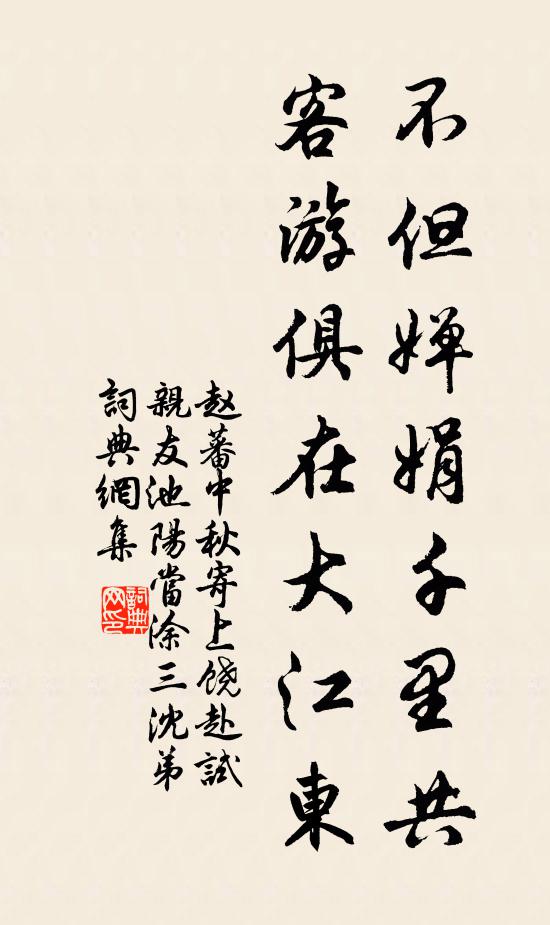 不但婵娟千里共
客游俱在大江東
赵蕃中秋寄上饶赴試
親友池陽當涂三沈弟
詞典網集
詞典
网印